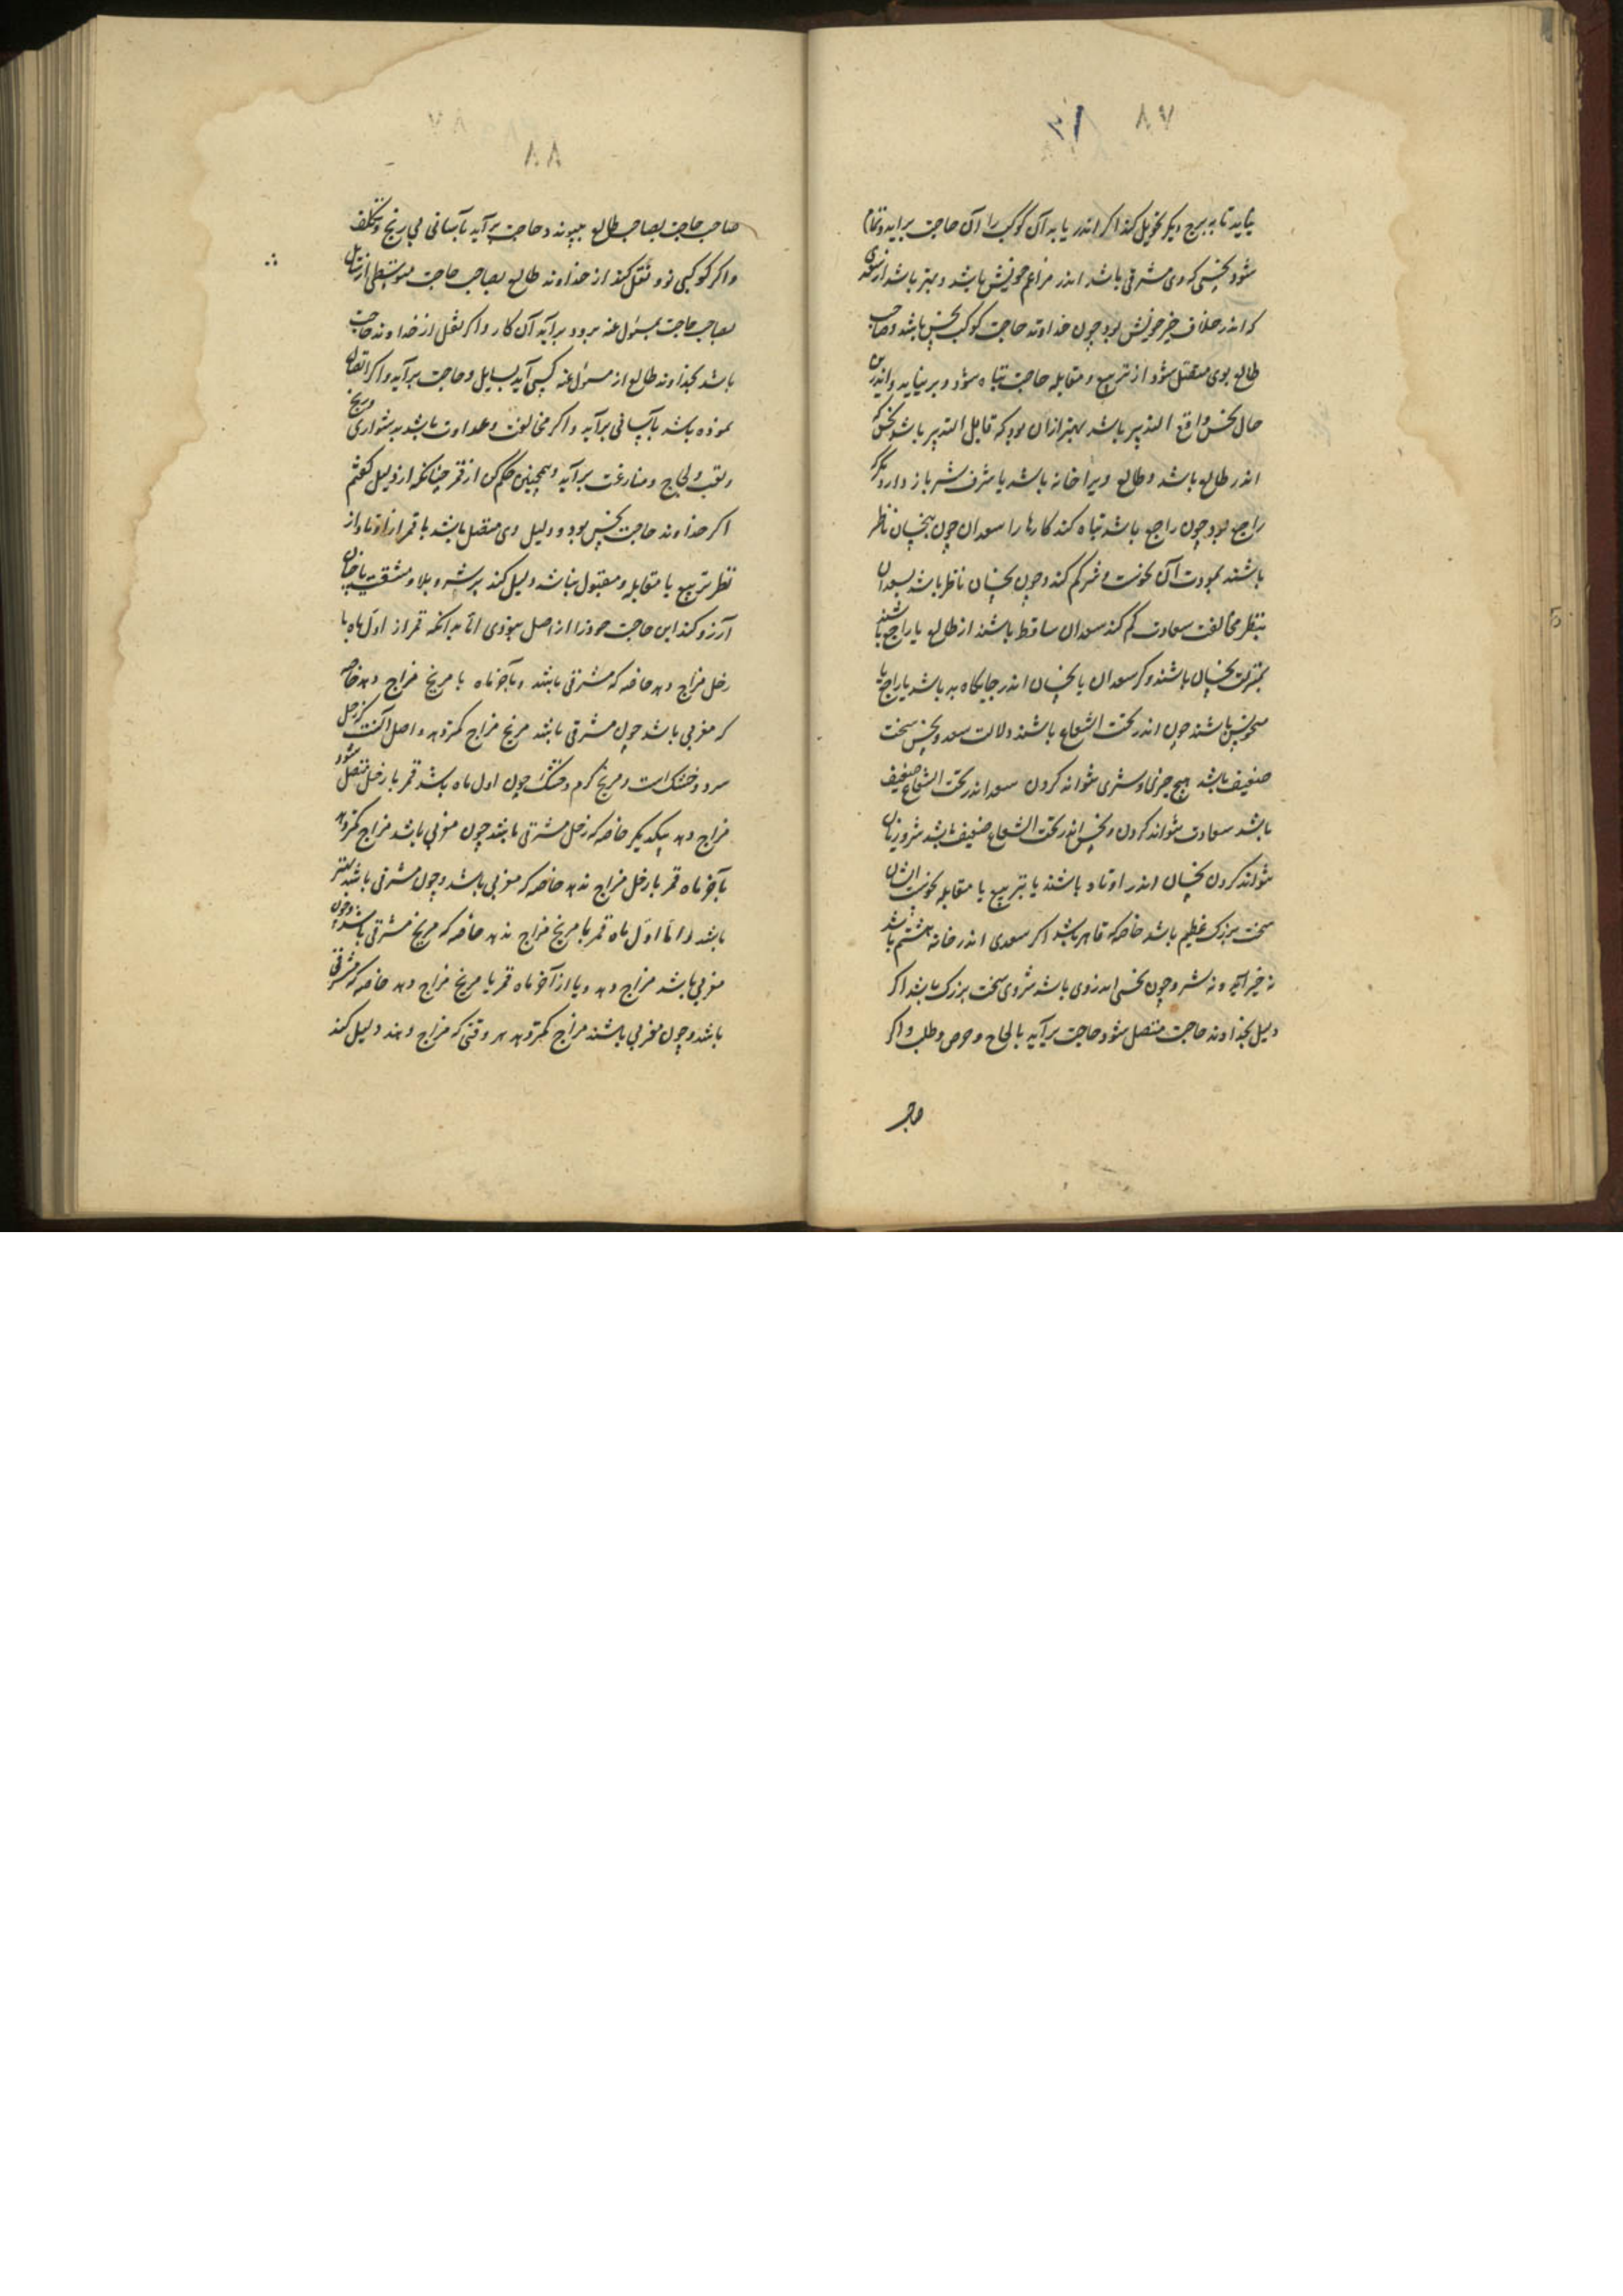 ۸۷
نیاید تا به برج دیکر تحویل کند اکر اندر یابد آن کوکب را آن حاجت براید و تمام
شود نحسی که وی مشرقی باشد اندر مزاعم خویش باشد و بهتر باشد از سعدی
که اندر خلاف خیر خویش بود چون خداوند حاجت کوکب نحس باشد و صاحب
طالع بوی متصل شود از تربیع و مقابله حاجت تباه شود و بر نیاید و اندرین
حال نحس واقع التدبیر باشد بهتر ازان بود که قابل التدبیر باشد نحس که
اندر طالع باشد و طالع ویرا خانه باشد یا شرف شر باز دارد مکر
راجع بود چون راجع باشد تباه کند کارها را سعدان چون بنحسان ناظر
باشند بمودت آن نحوست و شر کم کند و چون نحسان ناظر باشد بسعدان
بنظر مخالفت سعادت کم کند سعدان ساقط باشند از طالع یا راجع باشند
بمنزلت نحسان باشند و کر سعدان یا نحسان اندر جایکاه بد باشد یا راجع یا
منحوس باشند چون اندر تحت الشعاع باشند دلالت سعد و نحس سخت
ضعیف باشد هیچ خیر و شری نتواند کردن سعد اندر تحت الشعاع ضعیف
باشد سعادت نتواند کردن و نحس اندر تحت الشعاع ضعیف باشد شر و زیان
نتواند کردن نحسان اندر اوتاد باشند یا بتربیع یا مقابله نحوست ایشان
سخت بزرک عظیم باشد خاصه که قاهر باشد اکر سعدی اندر خانه هشتم باشد
نه خیر آید و نه شر و چون نحسی اندر وی باشد شر وی سخت بزرک باشد اکر
دلیل بخداوند حاجت متصل شود حاجت برآید بالحاح و حرص و طلب و اکر
۸۸
صاحب حاجت بصاحب طالع بپیوندد حاجت برآید بآسانی بی رنج و تکلف
و اکر کوکبی نور نقل کند از خداوند طالع بصاحب حاجت متوسطی از سایل
بصاحب حاجت بمسئول عنه برود برآید آن کار و اکر نقل از خداوند حاجت
باشد بخداوند طالع از مسئول عنه کسی آید بسایل و حاجت برآید و اکر اتصال
بموده باشد بآسانی برآید و اکر مخالفت و عداوت باشد بدشواری و رنج
و تعب و لجاج و منازعت برآید و همچنین حکم کن از قمر چنانکه از دلیل کفتم
اکر خداوند حاجت نحس بود و دلیل وی متصل باشد یا قمر از اوتاد از
نظر تربیع یا مقابله و مقبول نباشد دلیل کند بر شر و بلا و مشقت
آرزو کند این حاجت خود را از اصل نبودی اما بدانکه قمر از اول ماه با
زحل مزاج دهد خاصه که مشرقی باشد و بآخر ماه با مریخ مزاج دهد خاصه
که مغربی باشد چون مشرقی باشد مریخ مزاج کمتر دهد و اصل آنست که زحل
سرد و خشک است و مریخ کرم و خشک چون اول ماه باشد قمر با زحل متصل شود
مزاج دهد بیکدیکر خاصه که زحل مشرقی باشد چون مغربی باشد مزاج کمتر دهد
بآخر ماه قمر با زحل مزاج ندهد خاصه که مغربی باشد و چون مشرقی باشد بهتر
باشد و اما اول ماه قمر با مریخ مزاج ندهد خاصه که مریخ مشرقی باشد و چون
مغربی باشد مزاج دهد و باز آخر ماه قمر با مریخ مزاج دهد خاصه که مشرقی
باشد و چون مغربی باشند مزاج کمتر دهد هر وقتی که مزاج دهند دلیل کند